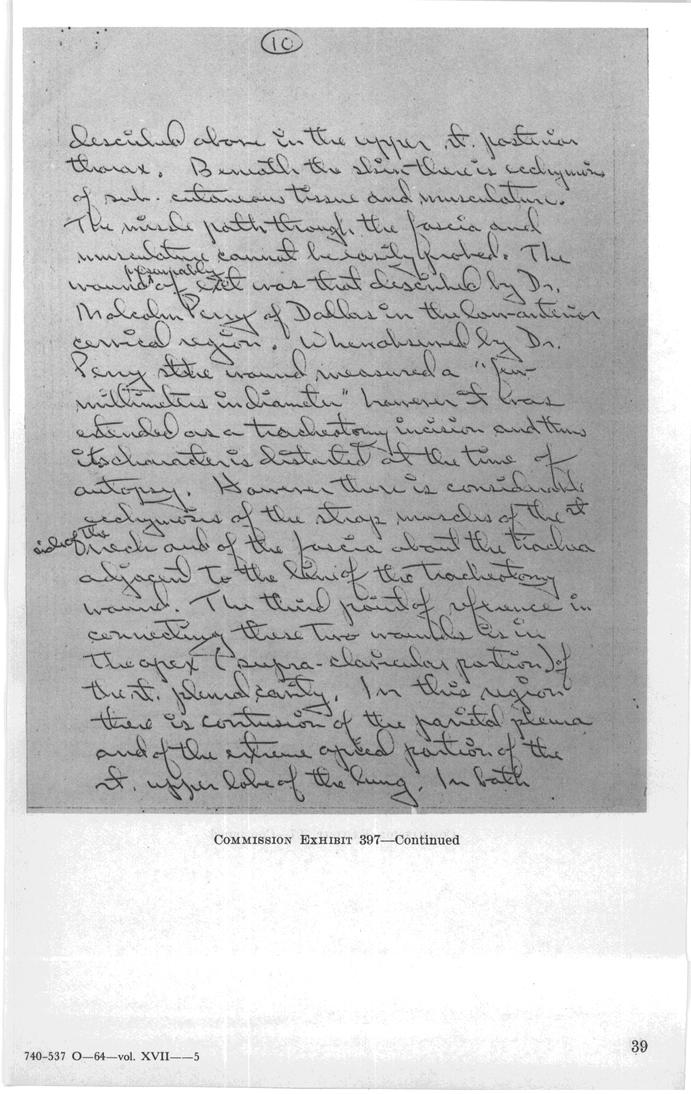 10
described above in the upper rt. posterior
thorax. Beneath the skin there is ecchymosis
of sub-cutaneous tissue and musculature.
The missle path through the fascia and
musculature cannot be easily probed. The
presumably
wound of exit was that described by Dr.
Malcolm Perry of Dallas in the low anterior
cervical region. When observed by Dr.
Perry the wound measured a "few
millimeters in diameter" however it was
extended as a tracheotomy incision and thus
its character is distorted at the time of
autopsy. However there is considerable
ecchymosis of the strap muscles of the rt
side of the
neck and of the fascia about the trachea
adjacent to the line of the tracheotomy
wound. The third point of reference in
connecting these two wounds is in
the apex (supra-clavicular portion) of
the rt. pleural cavity. In this region
there is contusion of the parietal pleura
and of the extreme apical portion of the
rt. upper lobe of the lung. In both
COMMISSION EXHIBIT 397—Continued
39
740-537 O—64—vol. XVII——5